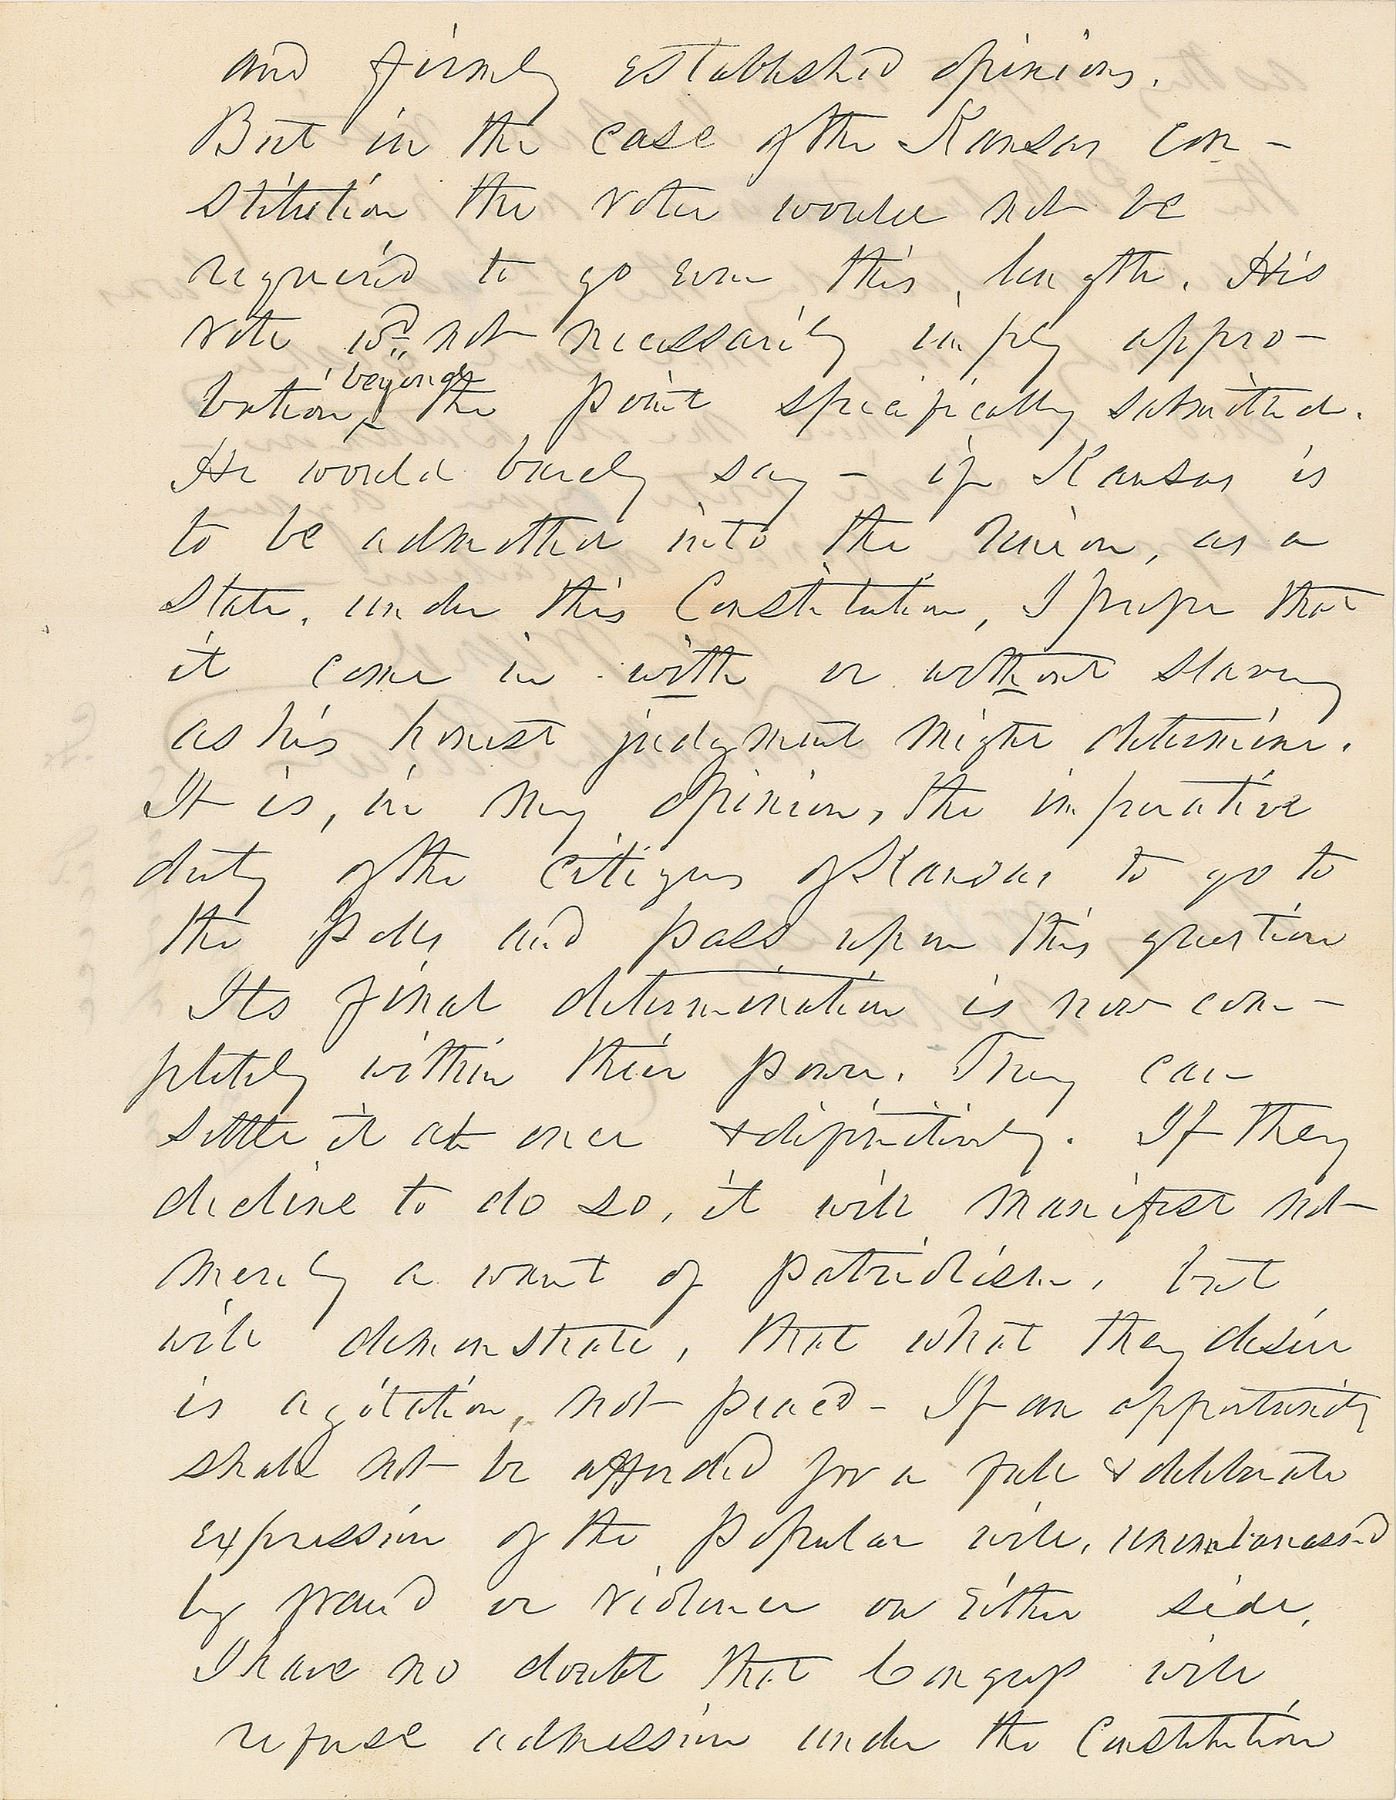 and firmly established opinions.
But in the case of the Kansas con-
stitution the voter would not be
required to go even this length. His
vote wd. not necessarily imply appro-
bation, beyond the point specifically submitted.
He would barely say - if Kansas is
to be admitted into the Union, as a
State, under this Constitution, I prefer that
it come in with or without slavery
as his honest judgment might determine.
It is, in my opinion, the imperative
duty of the citizens of Kansas to go to
the Polls and pass upon this question
Its final determination is now com-
pletely within their power. They can
settle it at once & definitively. If they
decline to do so, it will manifest not
merely a want of patriotism, but
will demonstrate, that what they desire
is agitation, not peace - If an opportunity
shall not be afforded for a full & deliberate
expression of the Popular will, unembarrassed
by fraud or violence on either side,
I have no doubt that Congress will
refuse admission under the Constitution